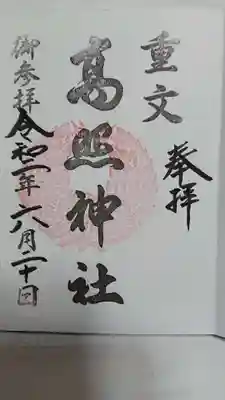 重文
奉拝
高照神社
御参拝
令和二年八月二十日